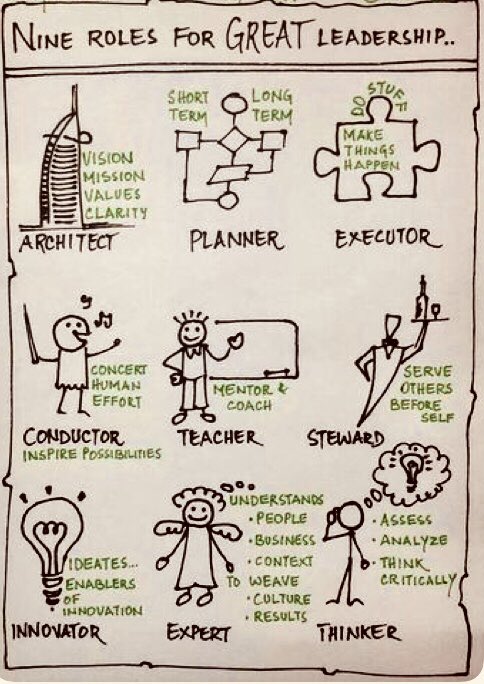 NINE ROLES FOR GREAT LEADERSHIP..
VISION
MISSION
VALUES
CLARITY
ARCHITECT
SHORT
TERM
LONG
TERM
PLANNER
DO STUFF
MAKE
THINGS
HAPPEN
EXECUTOR
CONCERT
HUMAN
EFFORT
CONDUCTOR
INSPIRE POSSIBILITIES
MENTOR &
COACH
TEACHER
SERVE
OTHERS
BEFORE
SELF
STEWARD
IDEATES...
ENABLERS
OF
INNOVATION
INNOVATOR
UNDERSTANDS
• PEOPLE
• BUSINESS
• CONTEXT
TO WEAVE
• CULTURE
• RESULTS
EXPERT
• ASSESS
• ANALYZE
• THINK
CRITICALLY
THINKER